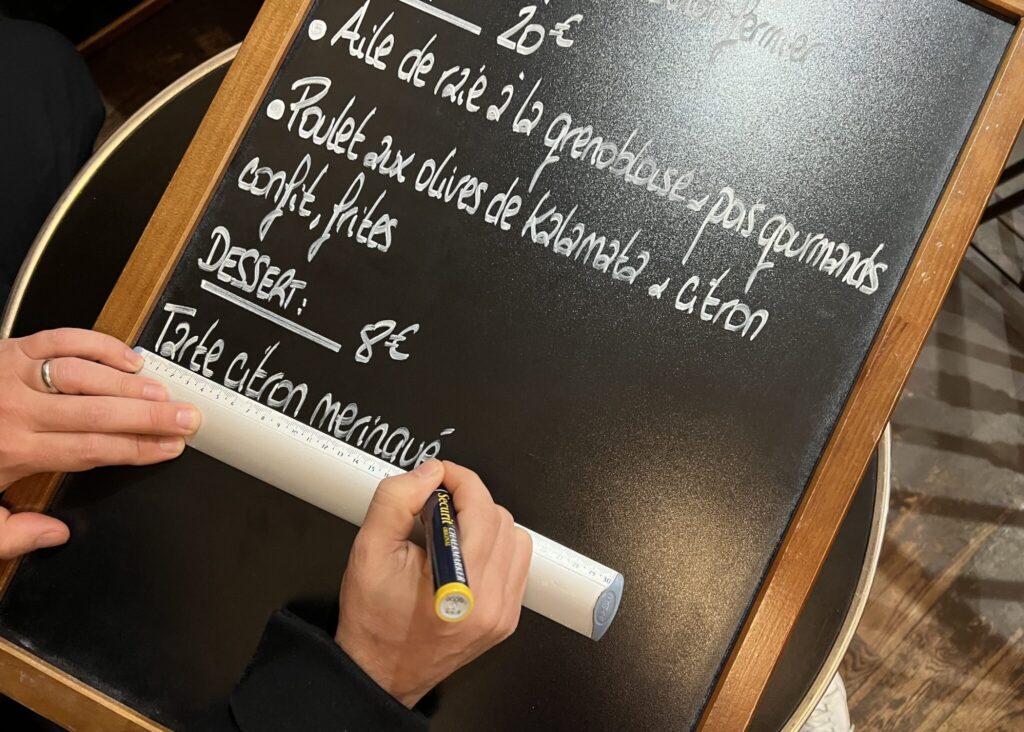 fermier
20€
• Aile de raie à la grenobloise, pois gourmands
• Poulet aux olives de Kalamata & citron
confit, frites
DESSERT: 8€
Tarte citron meringué
Securit CHALKMARKER
ORIGINAL